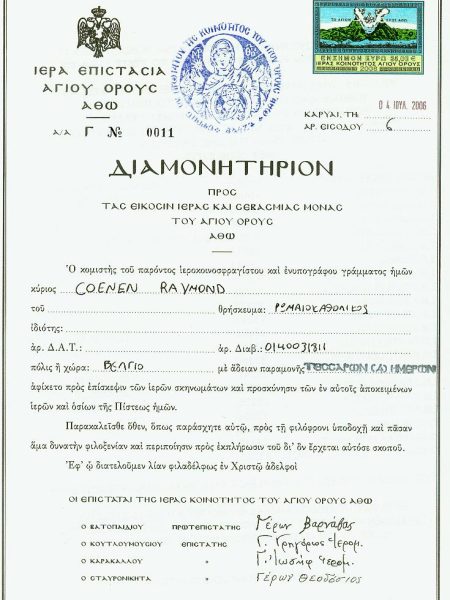 ΙΕΡΑ ΕΠΙΣΤΑΣΙΑ
ΑΓΙΟΥ ΟΡΟΥΣ
ΑΘΩ
Α/Α Γ № 0011
ΕΝΣΗΜΟΝ ΕΥΡΩ
ΙΕΡΑΣ ΚΟΙΝΟΤΗΤΟΣ ΑΓΙΟΥ ΟΡΟΥΣ
2006
ΚΑΡΥΑΙ, ΤΗ 04 ΙΟΥΛ. 2006
ΑΡ. ΕΙΣΟΔΟΥ 6
ΔΙΑΜΟΝΗΤΗΡΙΟΝ
ΠΡΟΣ
ΤΑΣ ΕΙΚΟΣΙΝ ΙΕΡΑΣ ΚΑΙ ΣΕΒΑΣΜΙΑΣ ΜΟΝΑΣ
ΤΟΥ ΑΓΙΟΥ ΟΡΟΥΣ
ΑΘΩ
Ὁ κομιστὴς τοῦ παρόντος ἱεροκοινοσφραγίστου καὶ ἐνυπογράφου γράμματος ἡμῶν
κύριος COENEN RAYMOND
τοῦ θρήσκευμα: ΡΩΜΑΙΟΚΑΘΟΛΙΚΟΣ
ἰδιότης:
ἀρ. Δ.Α.Τ.: ἀρ. Διαβ.: 0140031811
πόλις ἢ χώρα: ΒΕΛΓΙΟ μὲ ἄδειαν παραμονῆς ΤΕΣΣΑΡΩΝ (4) ΗΜΕΡΩΝ
ἀφίκετο πρὸς ἐπίσκεψιν τῶν ἱερῶν σκηνωμάτων καὶ προσκύνησιν τῶν ἐν αὐτοῖς ἀποκειμένων
ἱερῶν καὶ ὁσίων τῆς Πίστεως ἡμῶν.
Παρακαλεῖσθε ὅθεν, ὅπως παράσχητε αὐτῷ, πρὸς τῇ φιλόφρονι ὑποδοχῇ καὶ πᾶσαν
ἅμα δυνατὴν φιλοξενίαν καὶ περιποίησιν πρὸς ἐκπλήρωσιν τοῦ δι᾽ ὃν ἔρχεται αὐτόσε σκοποῦ.
Ἐφ᾽ ᾧ διατελοῦμεν λίαν φιλαδέλφως ἐν Χριστῷ ἀδελφοὶ
ΟΙ ΕΠΙΣΤΑΤΑΙ ΤΗΣ ΙΕΡΑΣ ΚΟΙΝΟΤΗΤΟΣ ΤΟΥ ΑΓΙΟΥ ΟΡΟΥΣ ΑΘΩ
Ο ΒΑΤΟΠΑΙΔΙΟΥ ΠΡΩΤΕΠΙΣΤΑΤΗΣ Γέρων Βαρνάβας
Ο ΚΟΥΤΛΟΥΜΟΥΣΙΟΥ ΕΠΙΣΤΑΤΗΣ Γ. Γρηγόριος Ἱερομ.
Ο ΚΑΡΑΚΑΛΛΟΥ » Γ. Ἰωσὴφ Ἱερομ.
Ο ΣΤΑΥΡΟΝΙΚΗΤΑ » Γέρων Θεοδόσιος